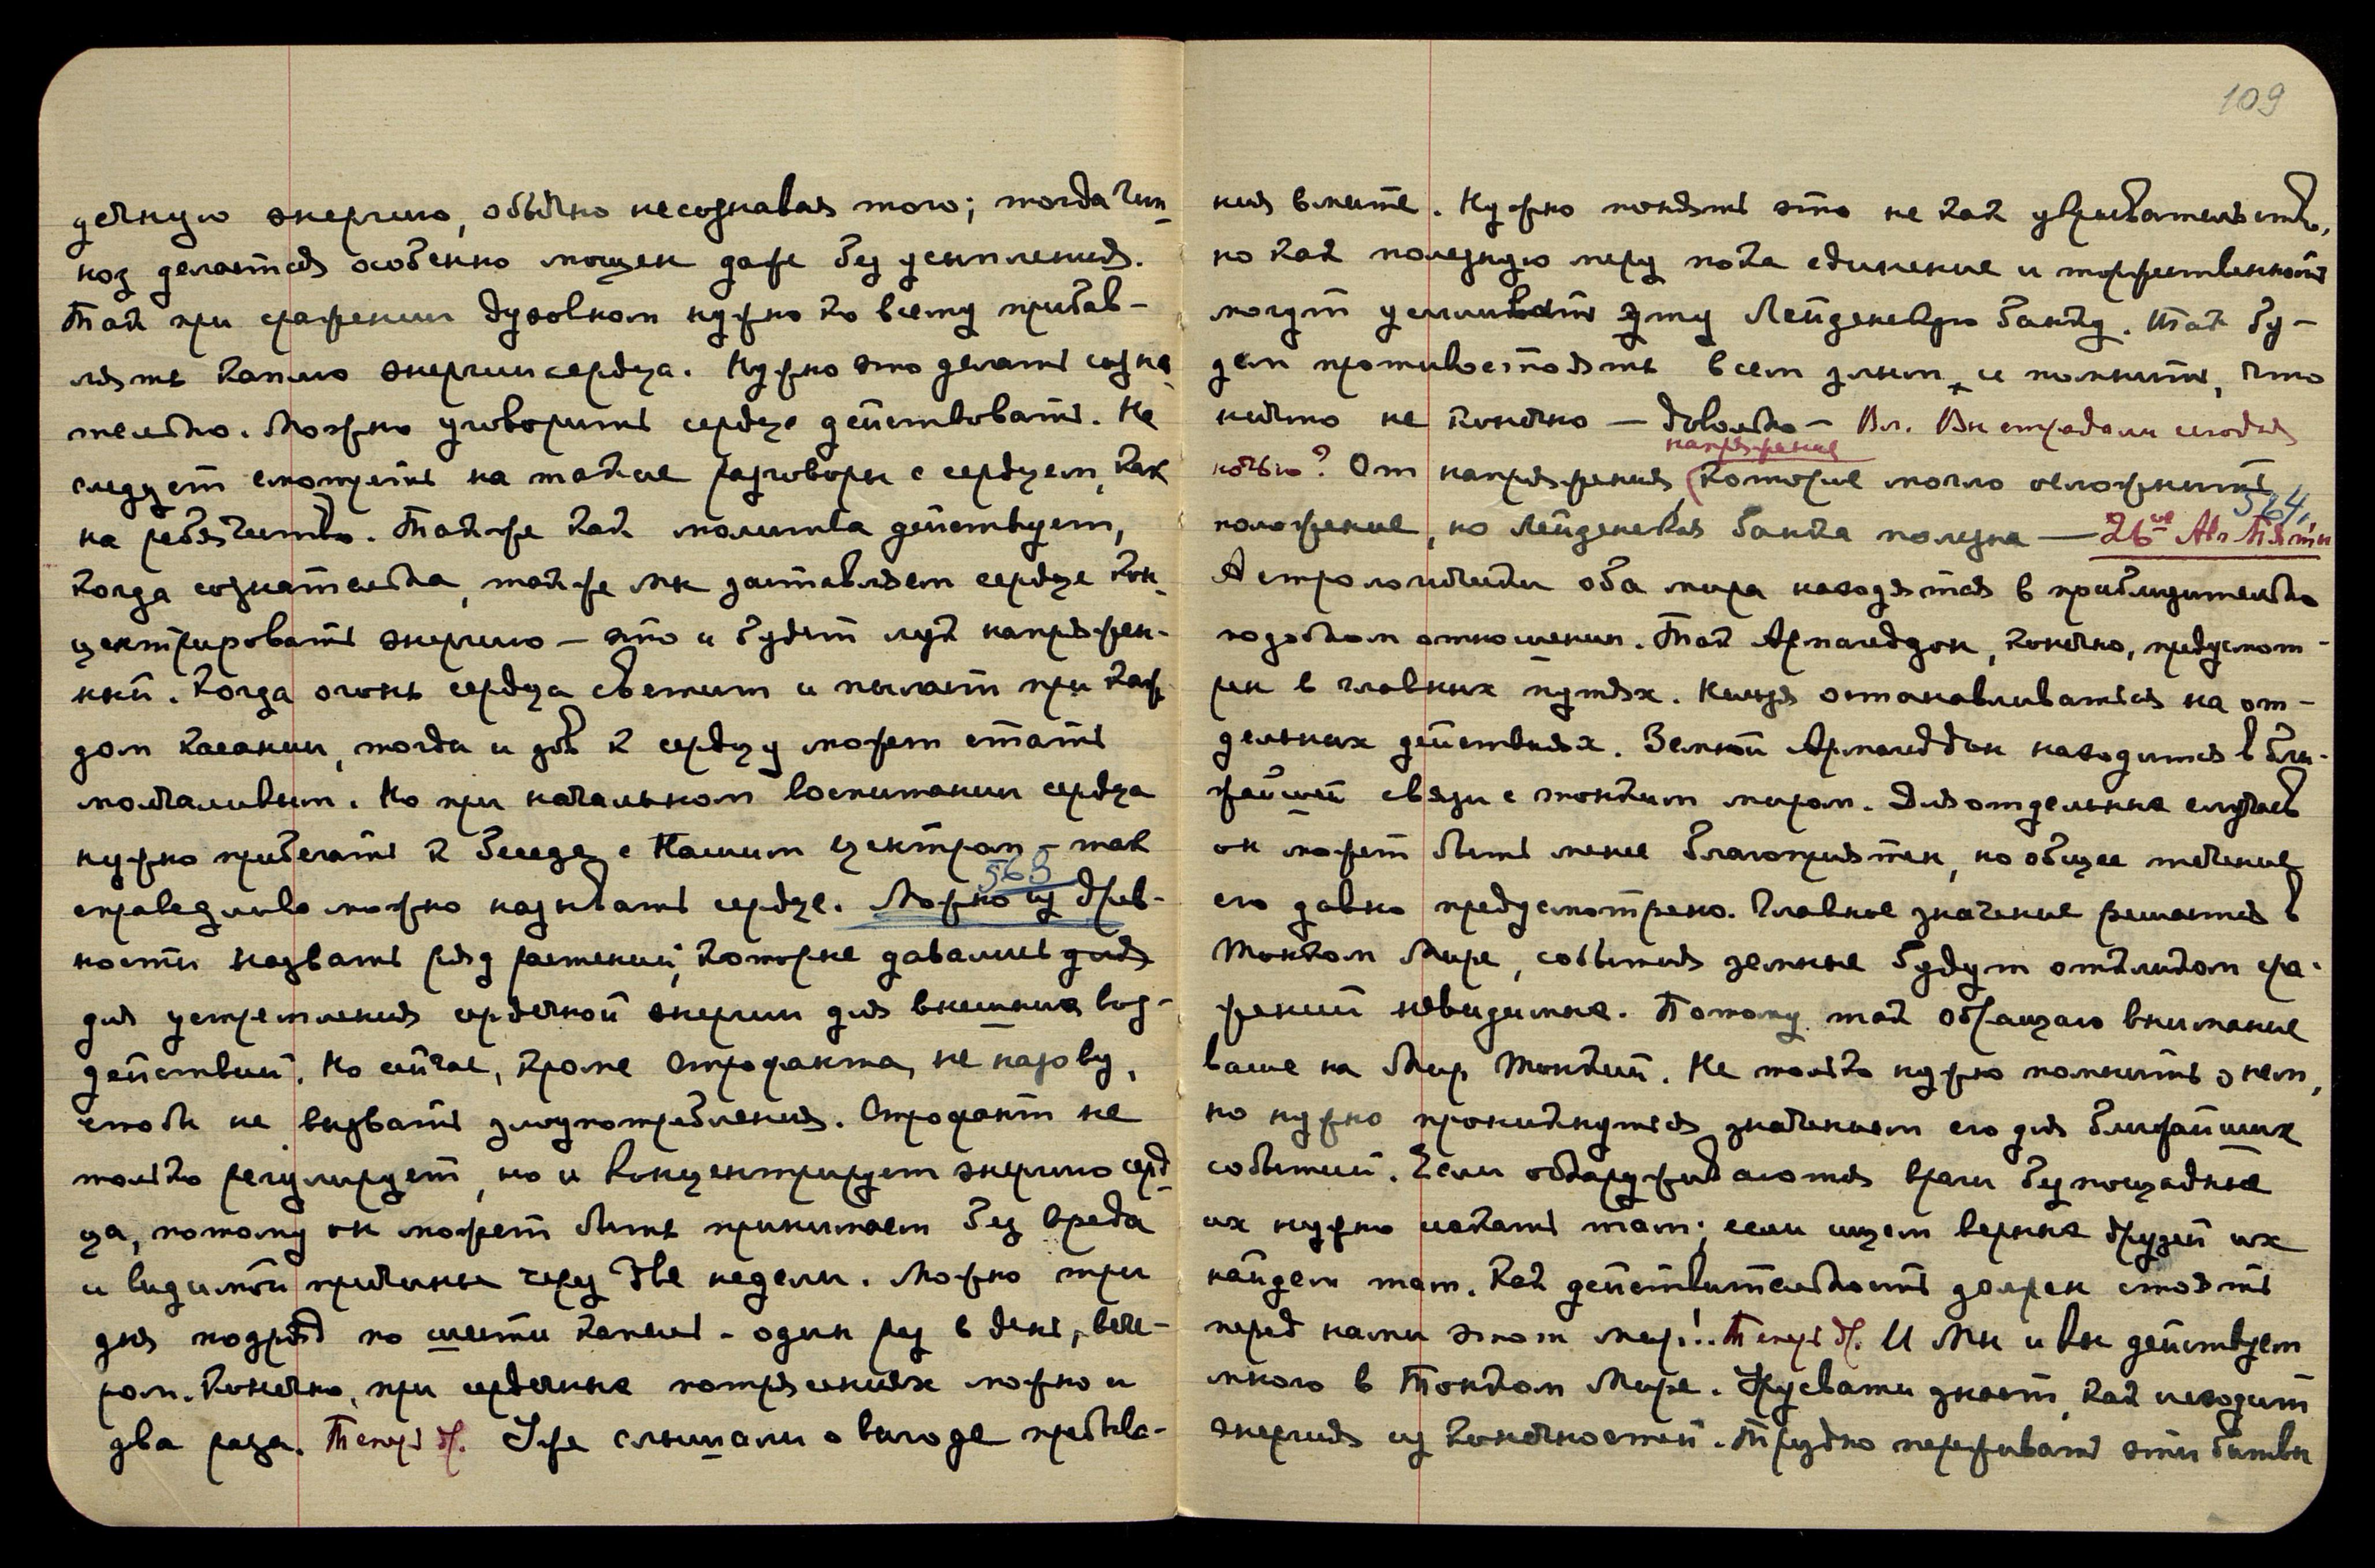 дечную энергию, обычно несознавая того; тогда гип-
ноз делается особенно мощен даже без усыпления.
Так при сражении духовном нужно ко всему прибав-
лять каплю энергии сердца. Нужно это делать созна-
тельно. Можно уговорить сердце действовать. Не
следует смотреть на такие разговоры с сердцем, как
на ребячество. Также как молитва действует,
когда сознательна, также мы заставляем сердце кон-
центрировать энергию — это и будет луч напряжен-
ный. Когда огонь сердца светит и пылает при каж-
дом касании, тогда и зов к сердцу может стать
молчаливым. Но при начальном воспитании сердца
нужно прибегать к беседе с Нашим центром — так
563
справедливо можно называть сердце. Можно из древ-
ности назвать ряд растений, которые давались для
для устремления сердечной энергии для внешних воз-
действий. Но сейчас, кроме Строфанта, не назову,
чтобы не вызвать злоупотребления. Строфант не
только регулирует, но и концентрирует энергию серд-
ца, потому он может быть принимаем без вреда
и видимой причины через две недели. Можно три
дня подряд по шести капель - один раз в день, вече-
ром. Конечно, при сердечных потрясениях можно и
два раза. Теперь др. Уже слышали о выгоде пребыва-
109
ния вместе. Нужно понять это не как увривательство,
но как полезную меру пока единение и торжественность
могут усиливать эту Лейденскую банку. Так бу-
дем противостоять всем злым и помнить, что
ничто не конечно — довольно — Вл. Вы страдали сегодня
напряжение
ночью? От напряжения, которые могло осложнить
564,
положение, но Лейденская банка полезна — 26ое Авг Пятн
Астрологически оба мира находятся в приблизительно
подобном отношении. Так Армагеддон, конечно, предусмот-
рен в главных путях. Нельзя останавливаться на от-
дельных действиях. Земной Армагеддон находится в бли-
жайшей связи с тонким миром. Для отдельных случаев
он может быть менее благоприятен, но общее течение
его давно предусмотрено. Главное значение решается в
Тонком Мире, события земные будут откликом сра-
жений невидимых. Потому так обращаю внимание
ваше на Мир Тонкий. Не только нужно помнить о нем,
но нужно проникнуться значением его для ближайших
событий. Если обнаруживаются враги беспощадные
их нужно искать там; если ищем верных друзей их
найдем там. Как действительность должен стоять
перед нами этот мир!.. Теперь др. И Мы и вы действуем
много в Тонком Мире. Урусвати знает, как исходит
энергия из конечностей. Трудно переживать эти битвы